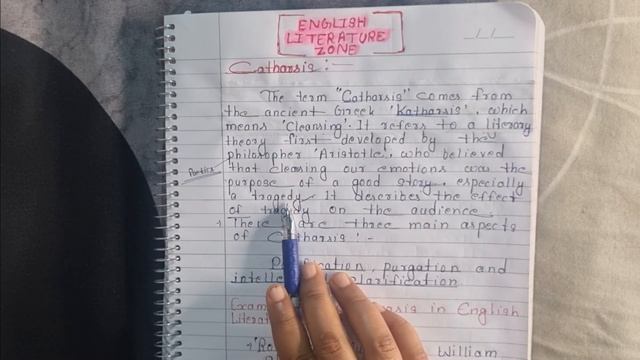 ENGLISH
LITERATURE
ZONE
Catharsis :-
The term "Catharsis" comes from
the ancient Greek 'Katharsis', which
means 'Cleansing'. It refers to a literary
theory first developed by the
philosopher 'Aristotle', who believed
Poetics
that cleasing our emotions was the
purpose of a good story, especially
a tragedy. It describes the effect
of tragedy on the audience.
There are three main aspects
of Catharsis :-
purgation and
clarification
in English
William